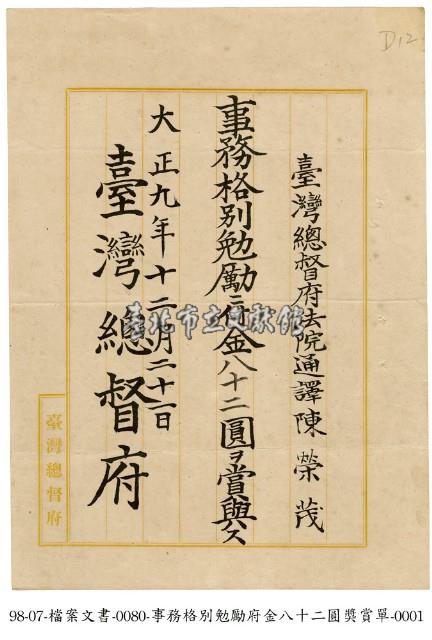 D12
臺灣總督府法院通譯陳榮茂
事務格別勉勵ニ付金八十二圓ヲ賞與ス
大正九年十二月二十一日
臺灣總督府
臺灣總督府
臺北市立文獻館
98-07-檔案文書-0080-事務格別勉勵府金八十二圓獎賞單-0001